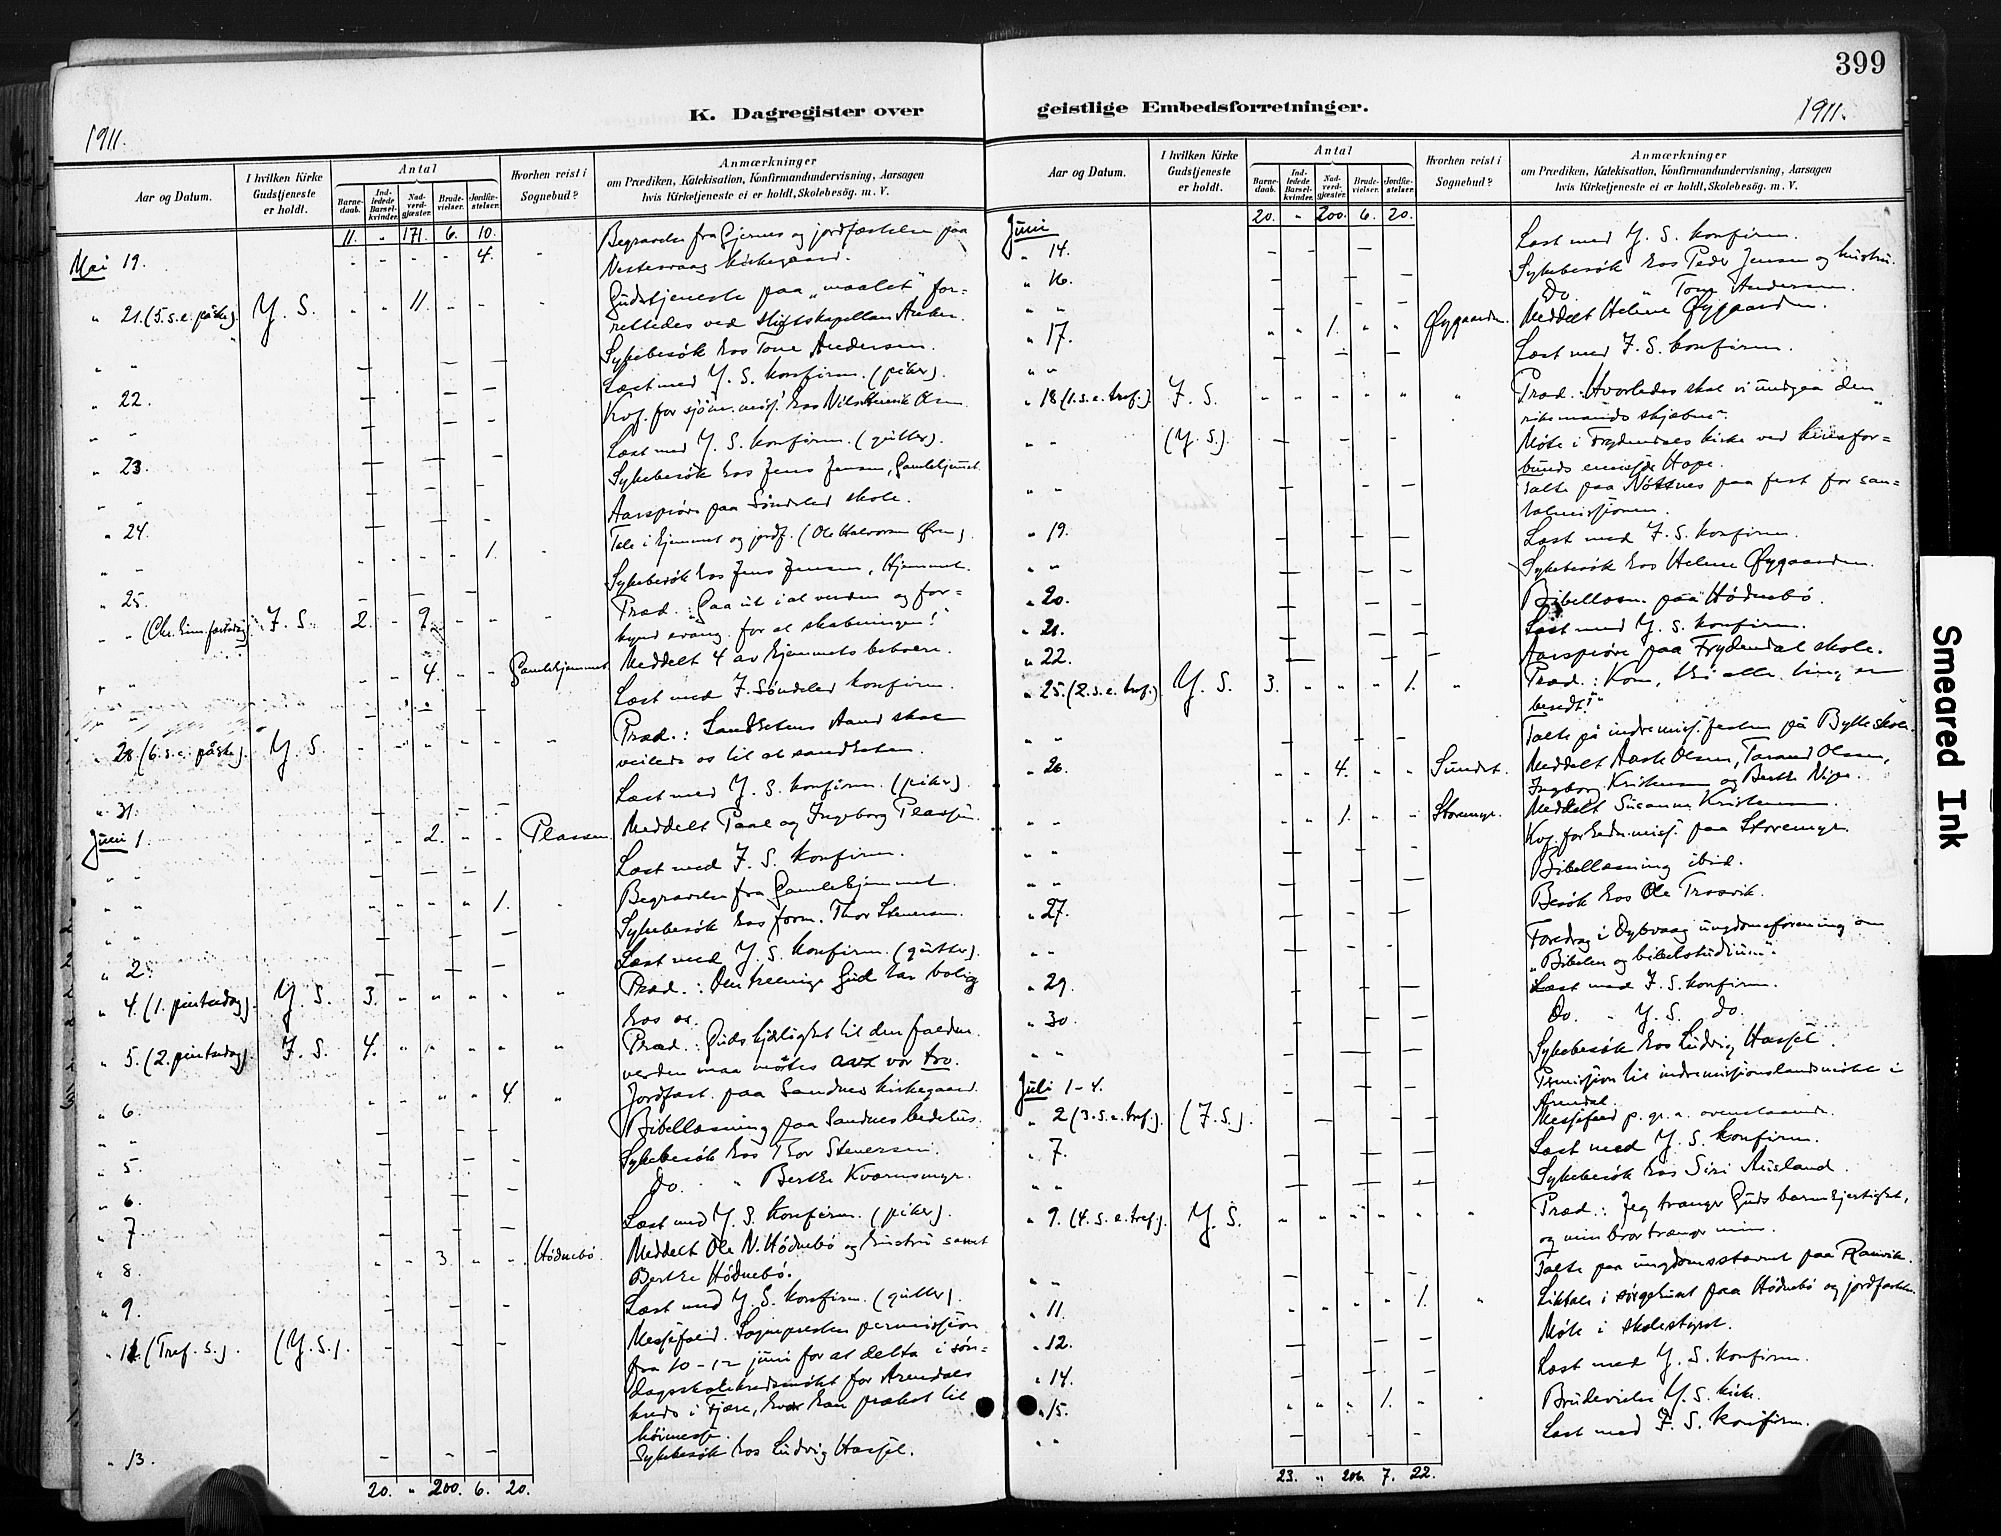 399
K. Dagregister over
geistlige Embedsforretninger.
1911.
1911.
Aar og Datum.
I hvilken Kirke Gudstjeneste er holdt.
Antal
Barnedaab.
Indledede Barselkvinder.
Nadverdgjæster.
Brudevielser.
Jordfæstelser.
Hvorhen reist i Sognebud?
Anmærkninger
om Prædiken, Katekisation, Konfirmandundervisning, Aarsagen
hvis Kirketjeneste ei er holdt, Skolebesøg. m. V.
11. " 171. 6. 10.
Mai 19. - - - - 4. - Begravelse fra Gjernes og jordfæstelse paa
Vestervaag kirkegaard.
" 21. (5. s. e. påske) Y. S. - - 11. - - - Gudstjeneste paa "maalet" for-
rettedes ved stiftskapellan Anker.
" " Sykebesök hos Tone Andersen.
" 22. Læst med Y. S. konfirm. (piker).
" " Kvf. for sjöm. miss. hos Nils Henrik Olsen
" 23. Læst med Y. S. konfirm. (gutter).
" " Sykebesök hos Jens Jensen, Gamlehjemmet.
" 24. Aarspröve paa Söndeled skole.
" " Tale i hjemmet og jordf. (Ole Halvorsen) 1. -
" 25. Sykebesök hos Jens Jensen, Hjemmet.
" " (Chr. him. fartsdag) F. S. 2. - 9. - - - Præd.: Gaa ut i al verden og for-
kynd evang. for al skabningen!
" " 4. - - Gamlehjemmet Meddelt 4 av hjemmets beboere.
Læst med F. Söndeled konfirm.
" 28. (6. s. e. påske). Y. S. Præd.: Sandhetens Aand skal
veilede os til al sandheten.
" 31. Læst med Y. S. konfirm. (piker).
Juni 1. - - 2. - - Plassen. Meddelt Paal og Ingeborg Plassen.
" " Læst med F. S. konfirm.
" " - - - - 1. - Begravelse fra Gamlehjemmet.
" " Sykebesök hos forn. Thor Stenersen.
" 2. Læst med Y. S. konfirm. (gutter).
" 4. (1. pintsedag). Y. S. 3. " " " " " Præd.: Den treenige Gud tar bolig
hos os.
" 5. (2. pintsedag). F. S. 4. " " " " " Præd.: Guds kjærlighet til den faldne
verden maa mötes av vor tro.
" 6. " " " " 4. " Jordfæst. paa Sandnes kirkegaard.
" " Bibellæsning paa Sandnes bedehus.
" 5. Sykebesök hos Thor Stenersen.
" 6. Do. " Berthe Kvernsmyr.
" 7. Læst med Y. S. konfirm. (piker).
" 8. " " 3. " " Hödnebö. Meddelt Ole N. Hödnebö og hustru samt
Berthe Hödnebö.
" 9. Læst med Y. S. konfirm. (gutter).
" 11. (Tref. S.). (Y. S.). Messefald. Sognepresten permission
fra 10-12 juni for at delta i sön-
dagsskolekredsmötet for Arendals
kreds i Fjære, hvor han prækte til
höimesse.
" 13. Sykebesök hos Ludvig Hassel.
20. " 200. 6. 20.
Aar og Datum.
I hvilken Kirke Gudstjeneste er holdt.
Antal
Barnedaab.
Indledede Barselkvinder.
Nadverdgjæster.
Brudevielser.
Jordfæstelser.
Hvorhen reist i Sognebud?
Anmærkninger
om Prædiken, Katekisation, Konfirmandundervisning, Aarsagen
hvis Kirketjeneste ei er holdt, Skolebesøg. m. V.
20. " 200. 6. 20.
Juni
" 14. Læst med Y. S. konfirm.
" 16. Sykebesök hos Peder Jensen og hustru.
" " Do. " Tone Andersen.
" 17. " " 1. " " Öygaarden. Meddelt Helene Öygaarden.
" " Læst med F. S. konfirm.
" 18 (1. s. e. tref.) F. S. Præd.: "Hvorledes skal vi undgaa den
rike mands skjæbne".
" " (Y. S.). Möte i Frydendals kirke ved kinafor-
bunds emissær Hope.
" " Talte paa Nöstnes paa fest for san-
talmissionen.
" 19. Læst med F. S. konfirm.
" " Sykebesök hos Helene Öygaarden.
" 20. Bibellæsn. paa Hödnebö.
" 21. Læst med Y. S. konfirm.
" 22. Aarspröve paa Frydendal skole.
" 25. (2. s. e. tref.) Y. S. 3. " " " 1. " Præd.: Kom, thi alle ting er
beredt!"
" " Talte på indremiss. festen på Bylteskole.
" 26. " " 4. " " Sundet. Meddelt Aase Olsen, Taraul Olsen,
Ingeborg Kristensen og Berthe Nipe.
" " " " 1. " " Storemyr. Meddelt Susanne Kristensen.
" " Kvf. for hedn. miss. paa Storemyr.
" " Bibellæsning ibid.
" 27. Besök hos Ole Traavik.
" " Foredrag i Dybvaag ungdomsforening om
"Bibelen og bibelstudium".
" 29. Læst med F. S. konfirm.
" 30. Do. " Y. S. do.
" " Sykebesök hos Ludvig Hassel.
Juli 1-4. Permission til indremissionslandsmötet i
Arendal.
" 2 (3. s. e. tref.). (F. S.). Messefald p. gr. a. ovenstaaende.
" 7. Læst med Y. S. konfirm.
" " Sykebesök hos Siri Ausland.
" 9. (4. s. e. tref.). Y. S. " " " " " " Præd.: Jeg trænger Guds barmhjertighet,
og min bror trænger min.
" " Talte paa ungdomsstevnet paa Ranvik.
" 11. " " " " 1. " Liktale i sörgehuset paa Hödnebö og jordfæstelse.
" 12. Möte i skolestyret.
" 14. Læst med Y. S. konfirm.
" 15. " " " 1. " " Brudevielse Y. S. kirke.
" " Læst med F. S. konfirm.
23. " 206. 7. 22.
Smeared Ink